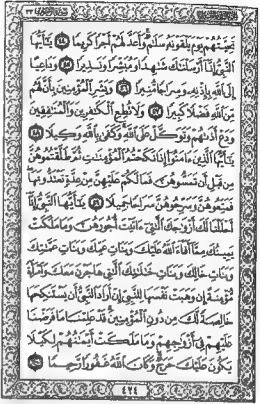 تَحِيَّتُهُمْ يَوْمَ يَلْقَوْنَهُ سَلَٰمٌ وَأَعَدَّ لَهُمْ أَجْرًا كَرِيمًا ٤٤ يَٰٓأَيُّهَا
ٱلنَّبِيُّ إِنَّآ أَرْسَلْنَٰكَ شَٰهِدًا وَمُبَشِّرًا وَنَذِيرًا ٤٥ وَدَاعِيًا
إِلَى ٱللَّهِ بِإِذْنِهِۦ وَسِرَاجًا مُّنِيرًا ٤٦ وَبَشِّرِ ٱلْمُؤْمِنِينَ بِأَنَّ لَهُم
مِّنَ ٱللَّهِ فَضْلًا كَبِيرًا ٤٧ وَلَا تُطِعِ ٱلْكَٰفِرِينَ وَٱلْمُنَٰفِقِينَ
وَدَعْ أَذَىٰهُمْ وَتَوَكَّلْ عَلَى ٱللَّهِ وَكَفَىٰ بِٱللَّهِ وَكِيلًا ٤٨
يَٰٓأَيُّهَا ٱلَّذِينَ ءَامَنُوٓا۟ إِذَا نَكَحْتُمُ ٱلْمُؤْمِنَٰتِ ثُمَّ طَلَّقْتُمُوهُنَّ
مِن قَبْلِ أَن تَمَسُّوهُنَّ فَمَا لَكُمْ عَلَيْهِنَّ مِنْ عِدَّةٍ تَعْتَدُّونَهَا
فَمَتِّعُوهُنَّ وَسَرِّحُوهُنَّ سَرَاحًا جَمِيلًا ٤٩ يَٰٓأَيُّهَا ٱلنَّبِيُّ إِنَّآ
أَحْلَلْنَا لَكَ أَزْوَٰجَكَ ٱلَّٰتِىٓ ءَاتَيْتَ أُجُورَهُنَّ وَمَا مَلَكَتْ
يَمِينُكَ مِمَّآ أَفَآءَ ٱللَّهُ عَلَيْكَ وَبَنَاتِ عَمِّكَ وَبَنَاتِ عَمَّٰتِكَ
وَبَنَاتِ خَالِكَ وَبَنَاتِ خَٰلَٰتِكَ ٱلَّٰتِى هَاجَرْنَ مَعَكَ وَٱمْرَأَةً
مُّؤْمِنَةً إِن وَهَبَتْ نَفْسَهَا لِلنَّبِيِّ إِنْ أَرَادَ ٱلنَّبِيُّ أَن يَسْتَنكِحَهَا
خَالِصَةً لَّكَ مِن دُونِ ٱلْمُؤْمِنِينَ قَدْ عَلِمْنَا مَا فَرَضْنَا
عَلَيْهِمْ فِىٓ أَزْوَٰجِهِمْ وَمَا مَلَكَتْ أَيْمَٰنُهُمْ لِكَيْلَا
يَكُونَ عَلَيْكَ حَرَجٌ وَكَانَ ٱللَّهُ غَفُورًا رَّحِيمًا ٥٠
٤٢٤